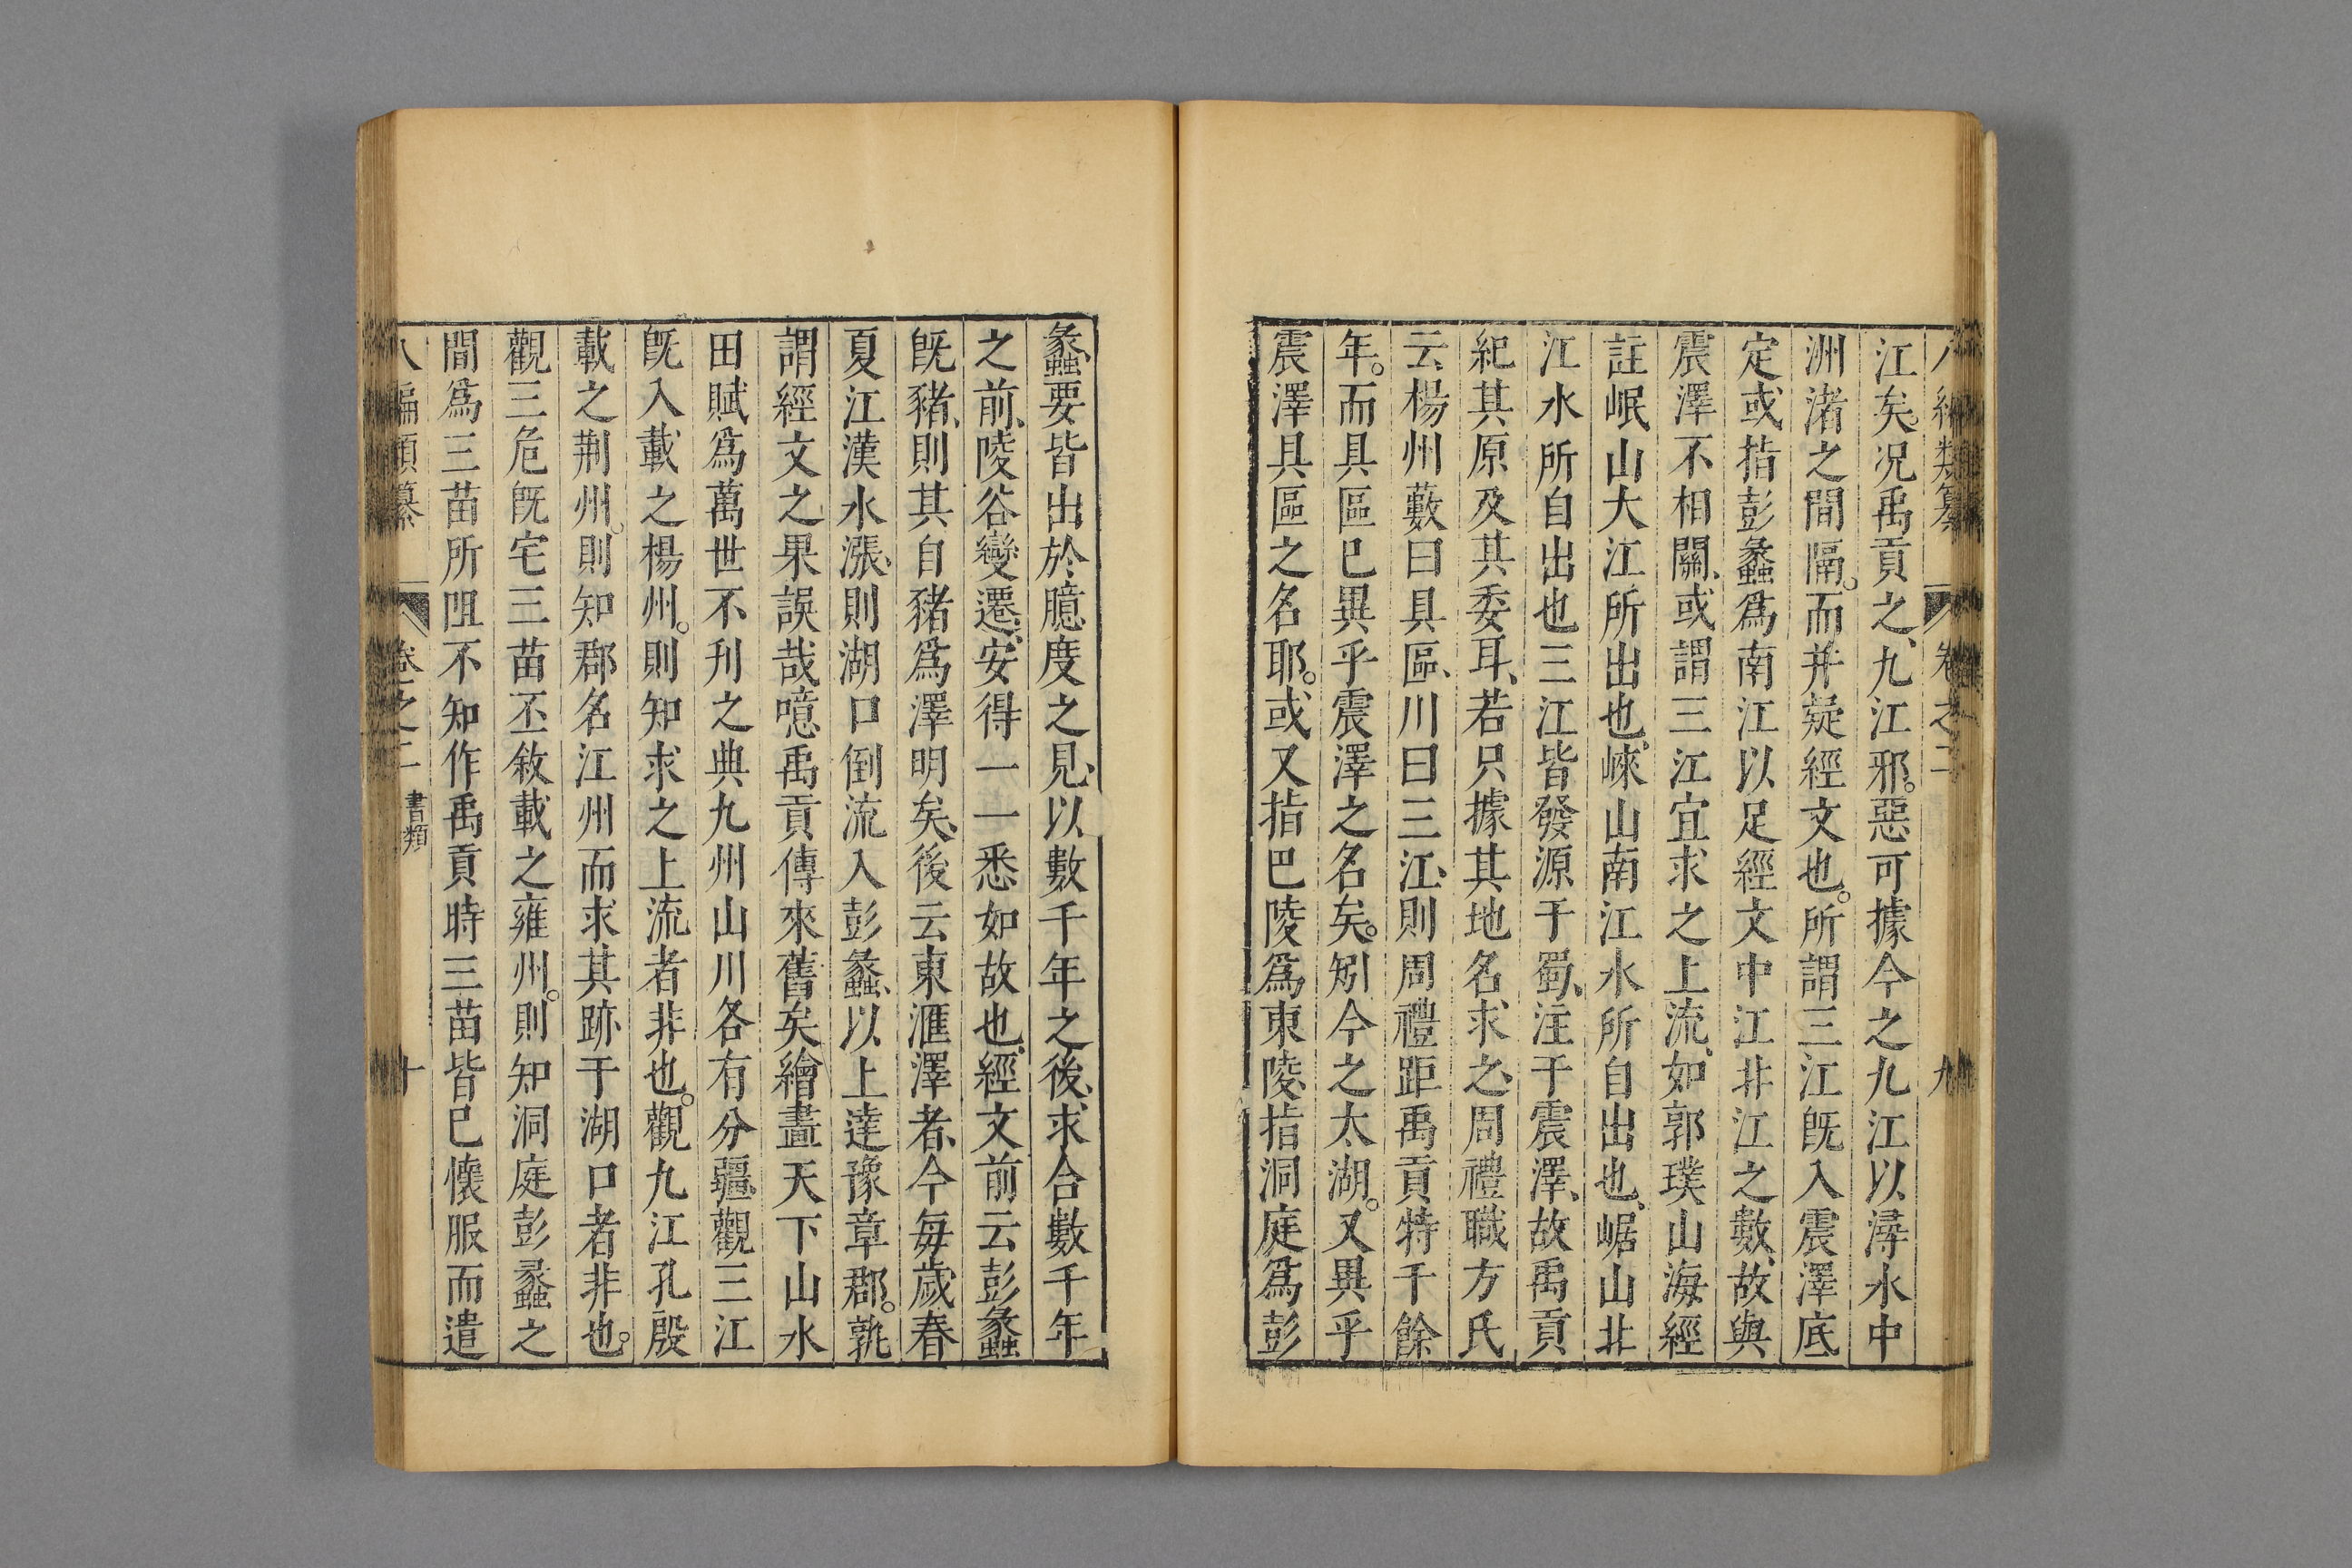 八編類纂 卷之二 九
江矣。况禹貢之、九江邪。惡可據今之九江以潯水中
洲渚之間隔。而并疑經文也。所謂三江既入震澤底
定或指彭蠡爲南江以足經文中江非江之數、故與
震澤不相關、或謂三江宜求之上流、如郭璞山海經
註岷山大江所出也、崍山南江水所自出也、崌山北
江水所自出也三江皆發源于蜀、注于震澤、故禹貢
紀其原及其委耳、若只據其地名求之、周禮職方氏
云、楊州藪曰具區、川曰三江、則周禮距禹貢特千餘
年。而具區已異乎震澤之名矣。矧今之太湖。又異乎
震澤具區之名耶。或又指巴陵爲東陵、指洞庭爲彭
蠡要皆出於臆度之見、以數千年之後、求合數千年
之前、陵谷變遷、安得一一悉如故也、經文前云彭蠡
既豬、則其自豬爲澤明矣、後云東滙澤者、今每歲春
夏江漢水漲、則湖口倒流入彭蠡、以上達豫章郡。孰
謂經文之果誤哉噫禹貢傳來舊矣繪畫天下山水
田賦爲萬世不刋之典九州山川各有分疆、觀三江
既入載之楊州。則知求之上流者非也。觀九江孔殷
載之荆州。則知郡名江州而求其跡于湖口者非也。
觀三危既宅三苗丕敘載之雍州。則知洞庭彭蠡之
間爲三苗所阻不知作禹貢時三苗皆已懷服而遣
八編類纂 卷之二 書類 十